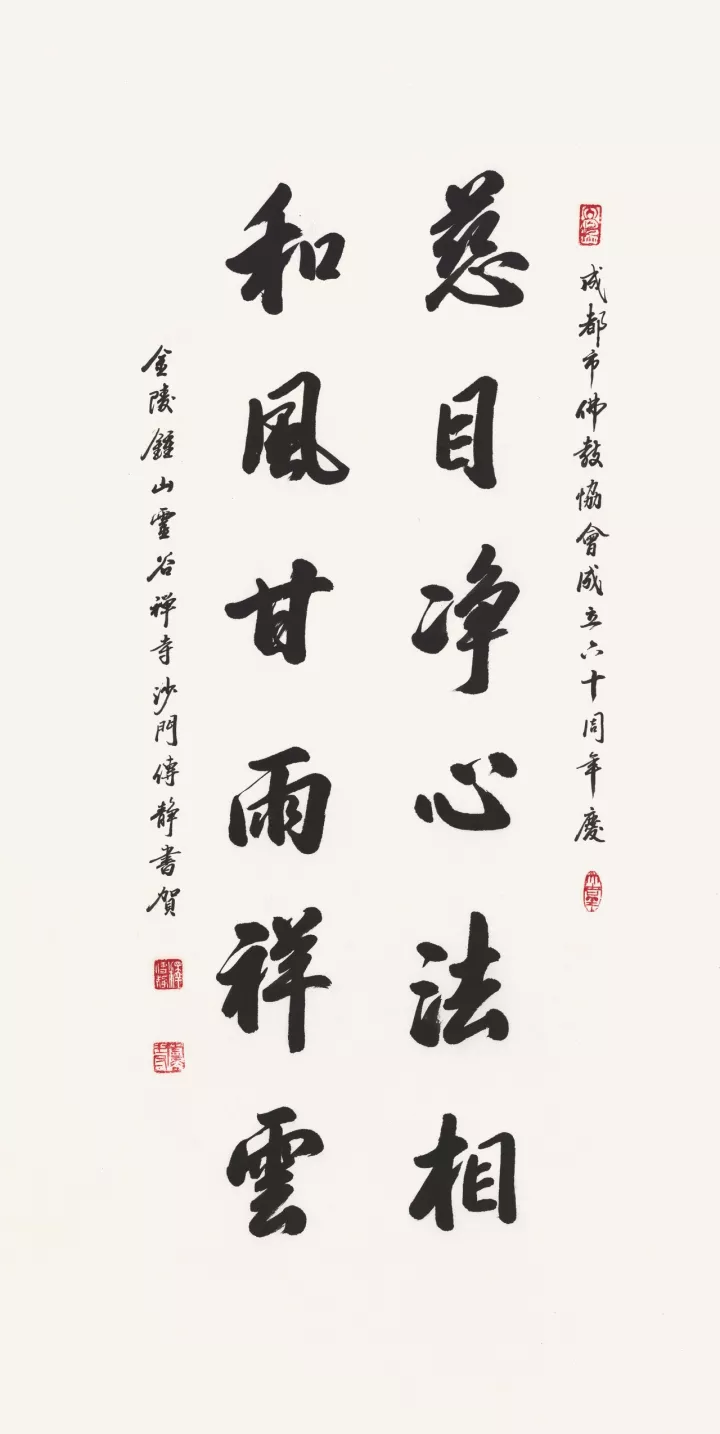 成都市佛教協會成立六十周年慶
慈目净心法相
和風甘雨祥雲
金陵鍾山靈谷禅寺沙門傳静書賀